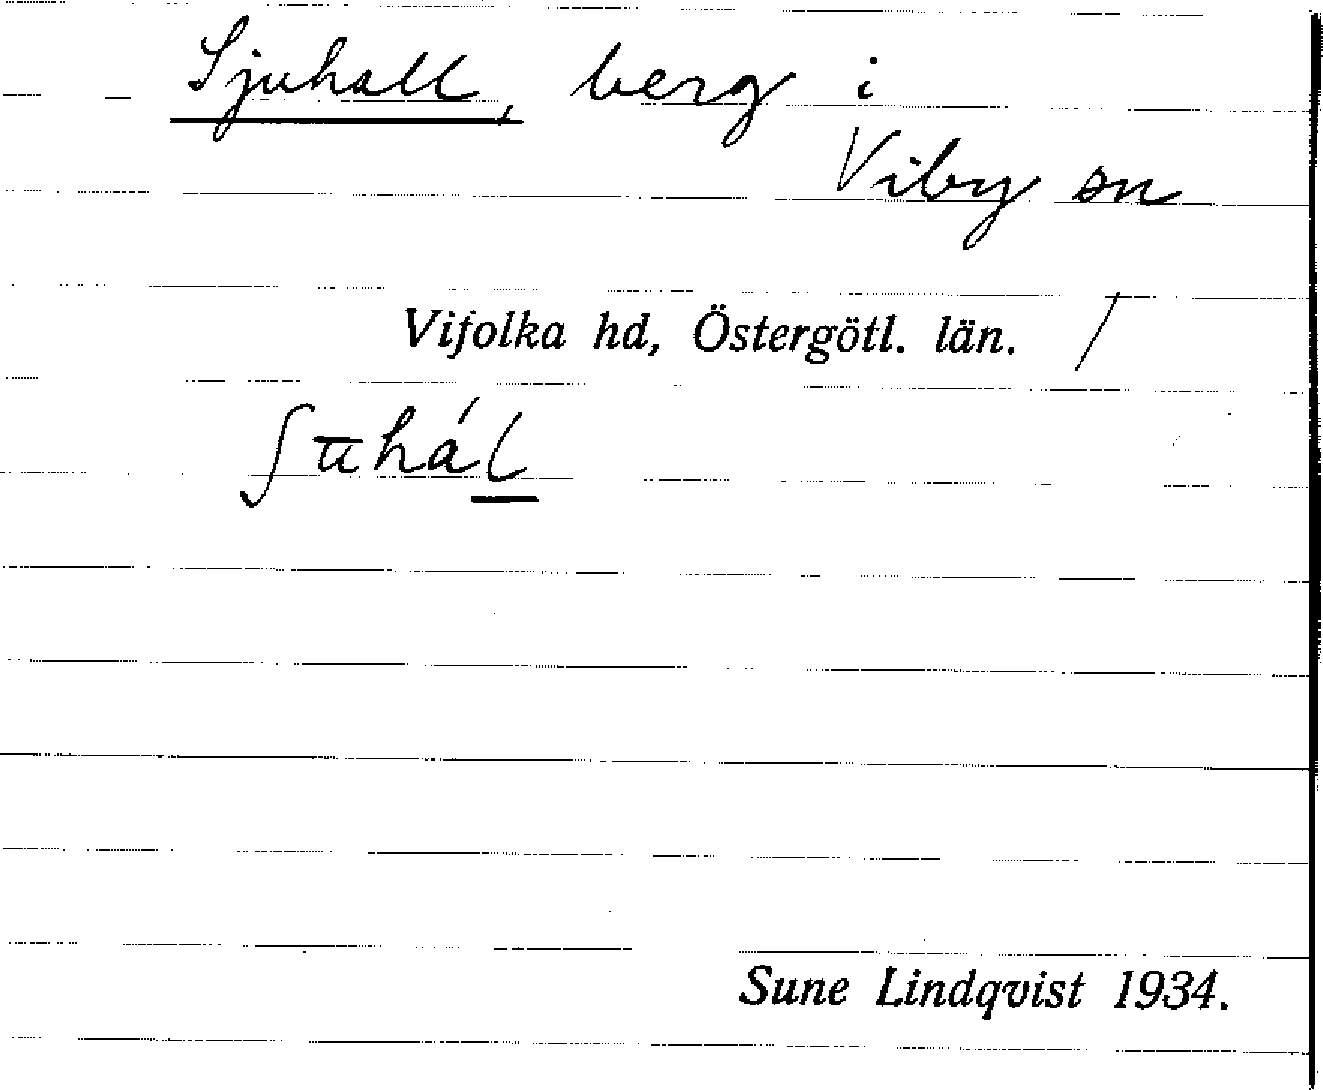 Sjuhall, berg i
Viby sn
Vifolka hd, Östergötl. län. /
ʃūhál
Sune Lindqvist 1934.